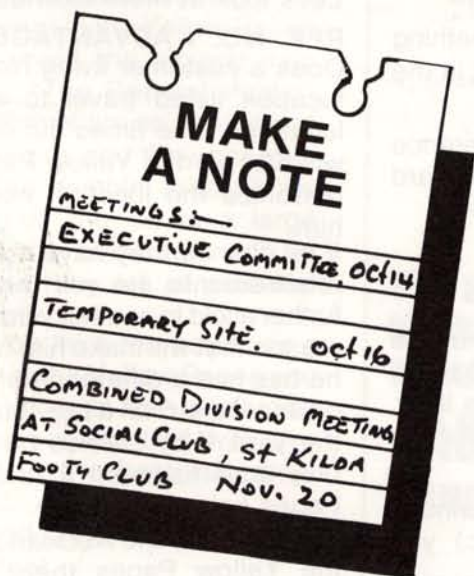 MAKE
A NOTE
MEETINGS:—
EXECUTIVE COMMITTEE, OCT14
TEMPORARY SITE. OCT 16
COMBINED DIVISION MEETING
AT SOCIAL CLUB, St KILDA
FOOTY CLUB NOV. 20